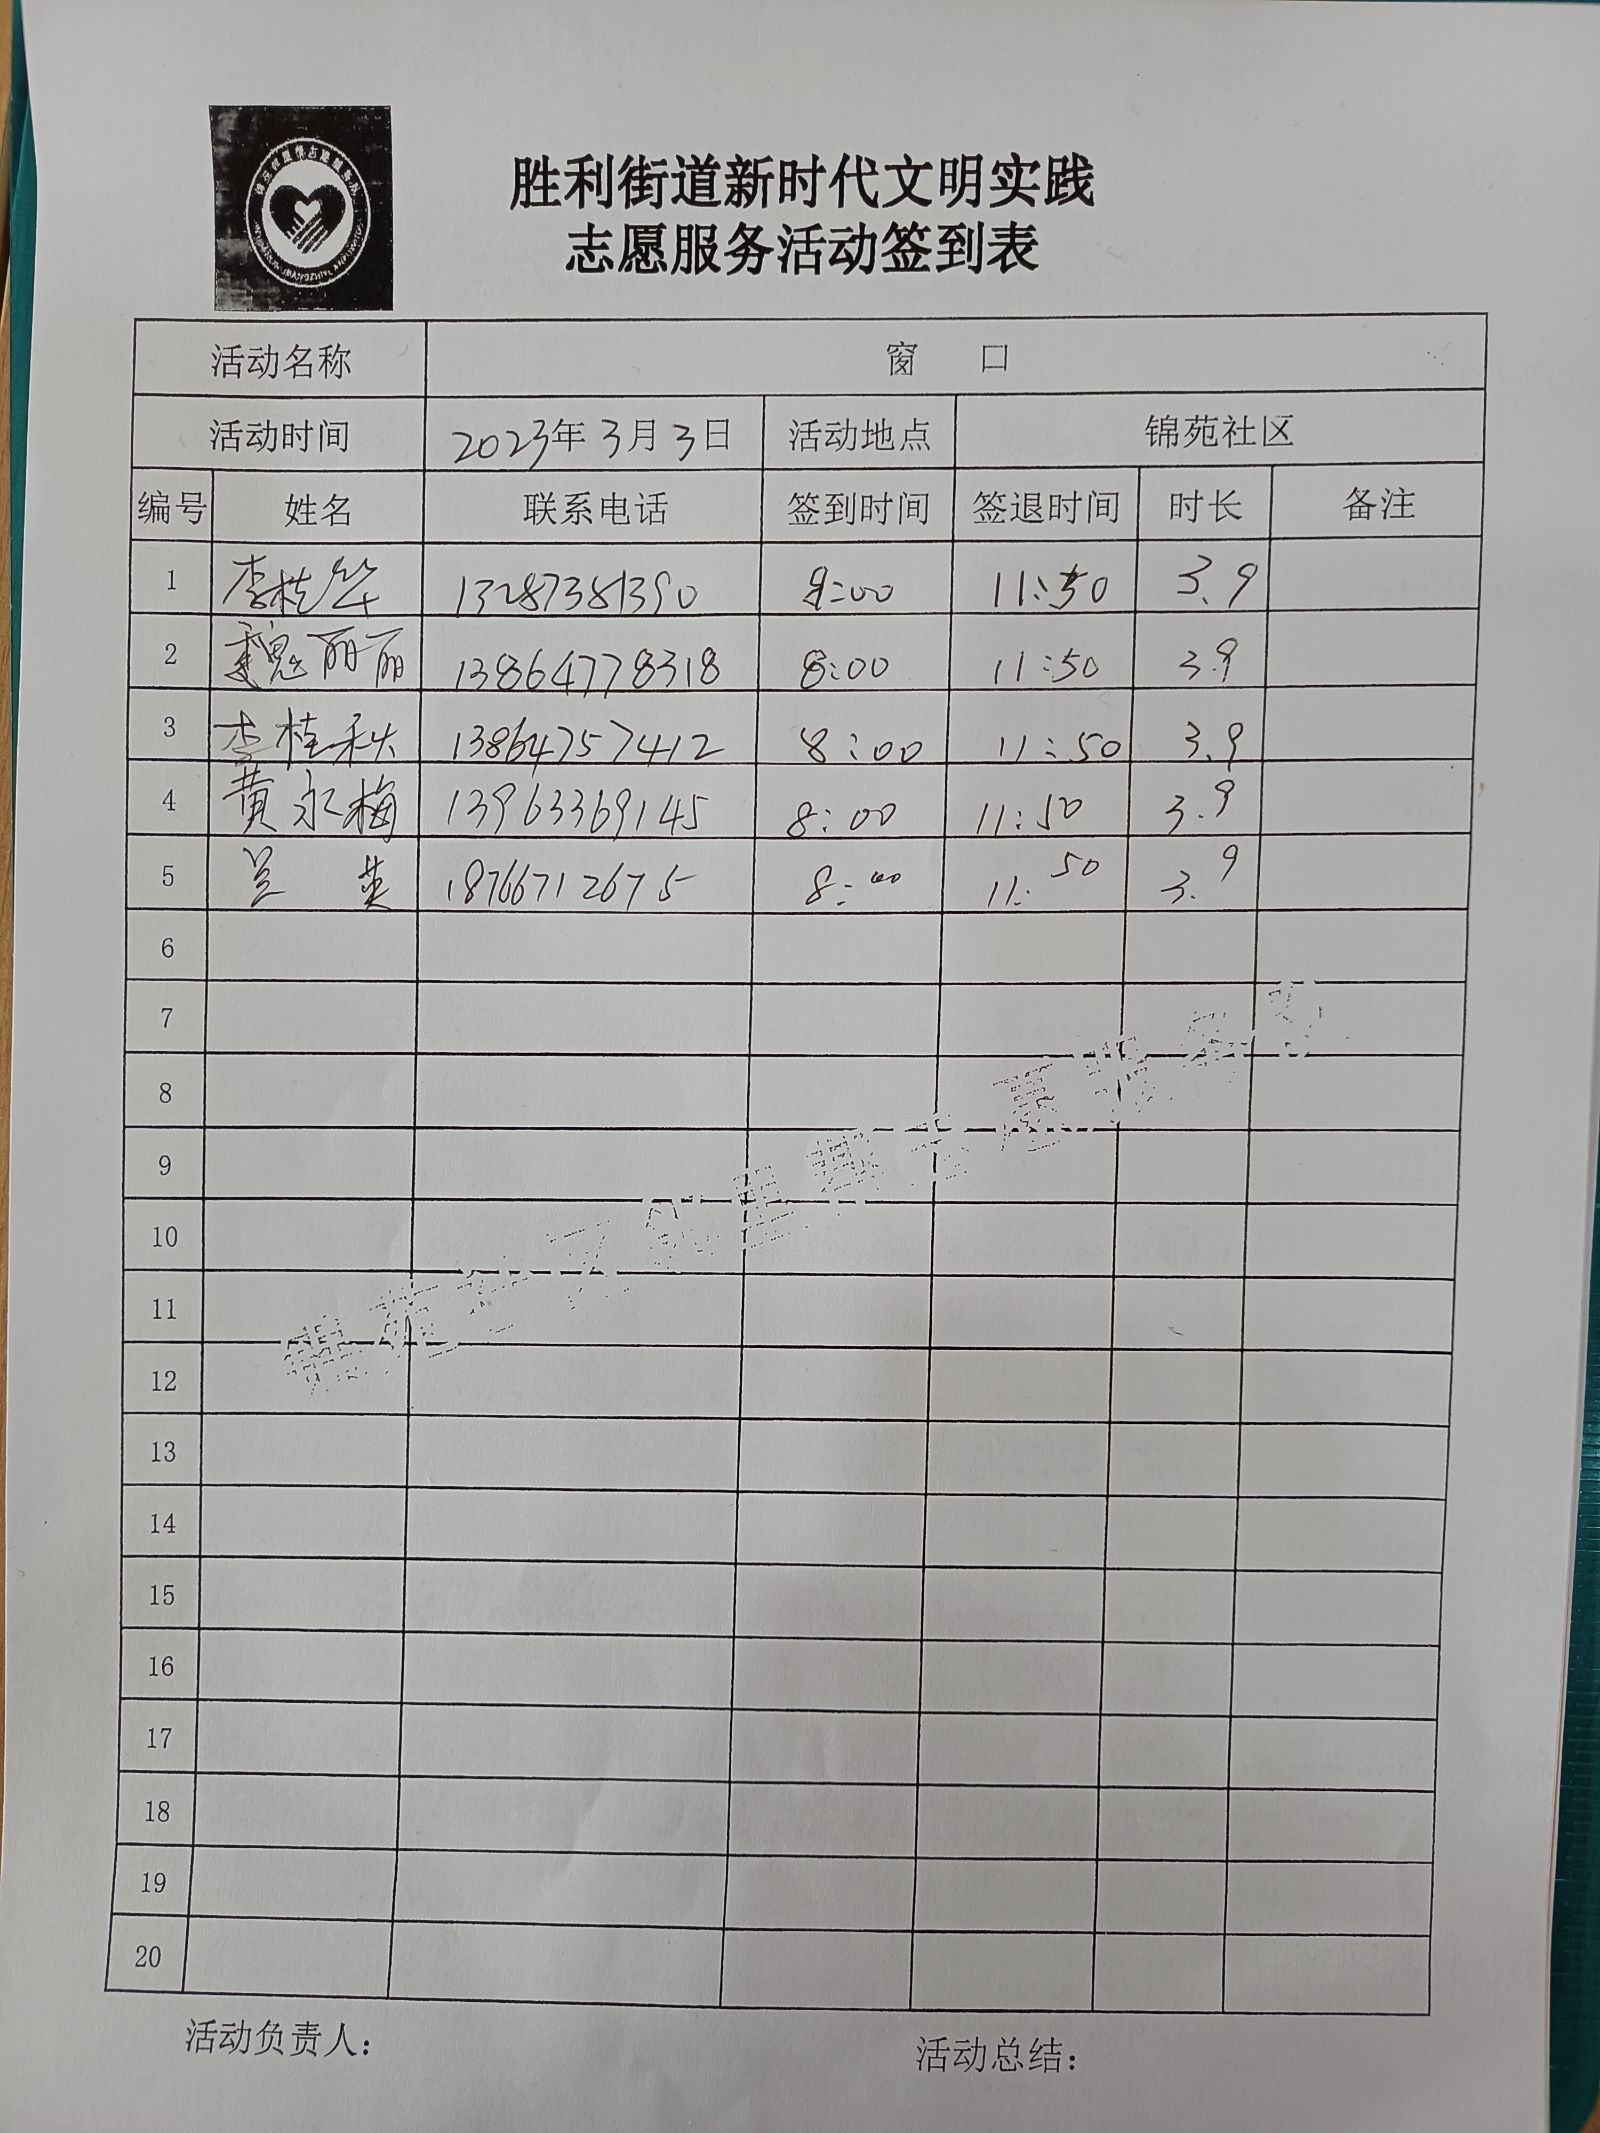 胜利街道新时代文明实践
志愿服务活动签到表
活动名称 窗 口
活动时间 2023年 3月 3日 活动地点 锦苑社区
编号 姓名 联系电话 签到时间 签退时间 时长 备注
1 李桂华 13287381390 8:00 11:50 3.9
2 魏丽丽 13864778318 8:00 11:50 3.9
3 李桂秋 13864757412 8:00 11:50 3.9
4 黄永梅 13963369145 8:00 11:50 3.9
5 兰 英 18766712675 8:00 11:50 3.9
6
7
8
9
10
11
12
13
14
15
16
17
18
19
20
活动负责人： 活动总结：